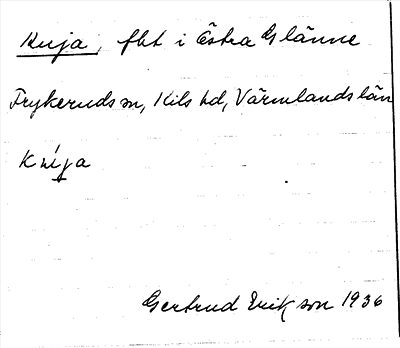 Knija, fbt i Östra Glänne
Frykeruds sn, Kils hd, Värmlands län
Kníja
Gertrud Erikson 1936